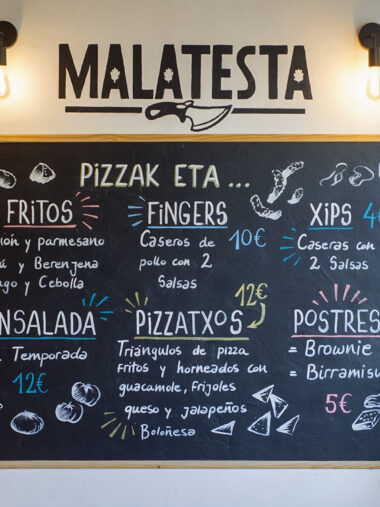 MALATESTA
PIZZAK ETA ...
FRITOS
y parmesano
y Berenjena
y Cebolla
FINGERS
10€
Caseros de
pollo con 2
Salsas
XIPS
Caseras con
2 Salsas
Temporada
12€
12€
PIZZATXOS
Triángulos de pizza
fritos y horneados con
guacamole, frijoles
queso y jalapeños
Boloñesa
POSTRES
= Brownie
= Birramisu
5€